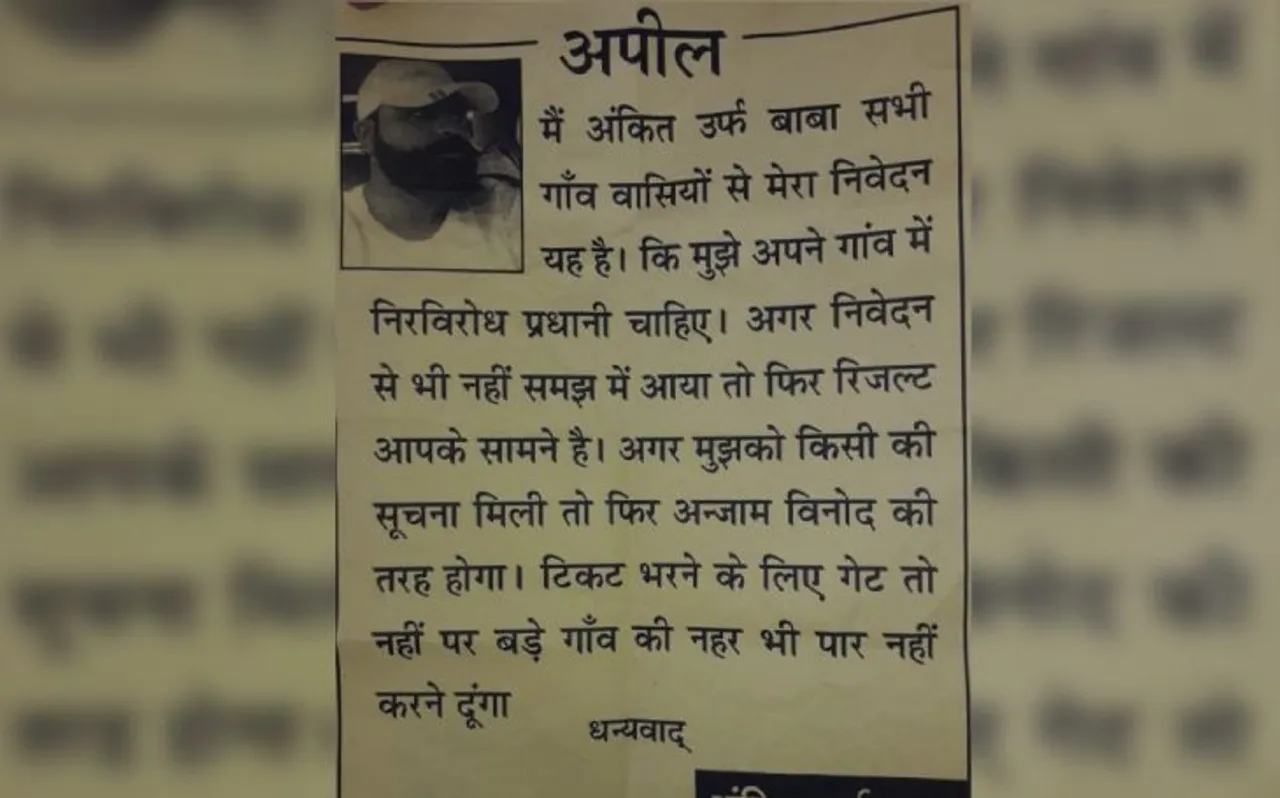 अपील
मैं अंकित उर्फ बाबा सभी
गाँव वासियों से मेरा निवेदन
यह है। कि मुझे अपने गांव में
निरविरोध प्रधानी चाहिए। अगर निवेदन
से भी नहीं समझ में आया तो फिर रिजल्ट
आपके सामने है। अगर मुझको किसी की
सूचना मिली तो फिर अन्जाम विनोद की
तरह होगा। टिकट भरने के लिए गेट तो
नहीं पर बड़े गाँव की नहर भी पार नहीं
करने दूंगा
धन्यवाद्